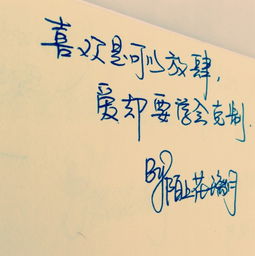 喜欢是可以放肆,
爱却要学会克制.
By 陌上花满月